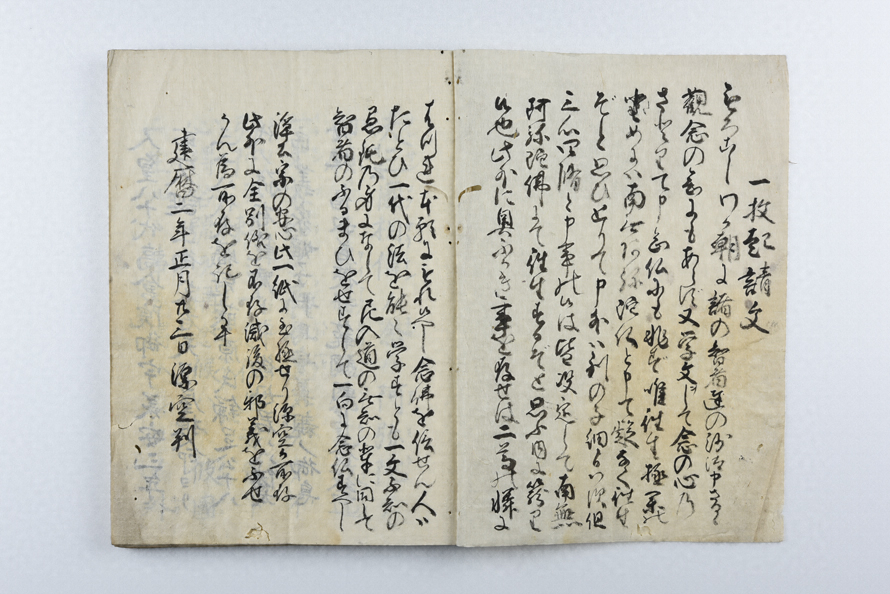 一枚起請文
もろこし・我か朝に諸の智者達の沙汰申さるゝ
觀念の念にもあらす又学文して念の心を
さとりて申念仏にも非す唯往生極樂の
ためには南無阿弥陀仏と申て疑なく往生
そと思ひとりて申外には別の子細候はす但
三心四修と申事の候は皆決定して南無
阿弥陀佛にて往生するそと思ふ内に篭り
候也此外に奥ふかき事を存せは二尊の憐に
はつれ本願にもれ候へし念佛を信せん人は
たとひ一代の法を能々学すとも一文不知の
愚鈍の身になして尼入道の無知の輩に同して
智者のふるまひをせすして一向に念仏すへし
浄土宗の安心此一紙に至極せり源空か所存
此外に全別儀を不存滅後の邪義をふせ
かん為所存を記し畢
建暦二年正月廿三日 源空判